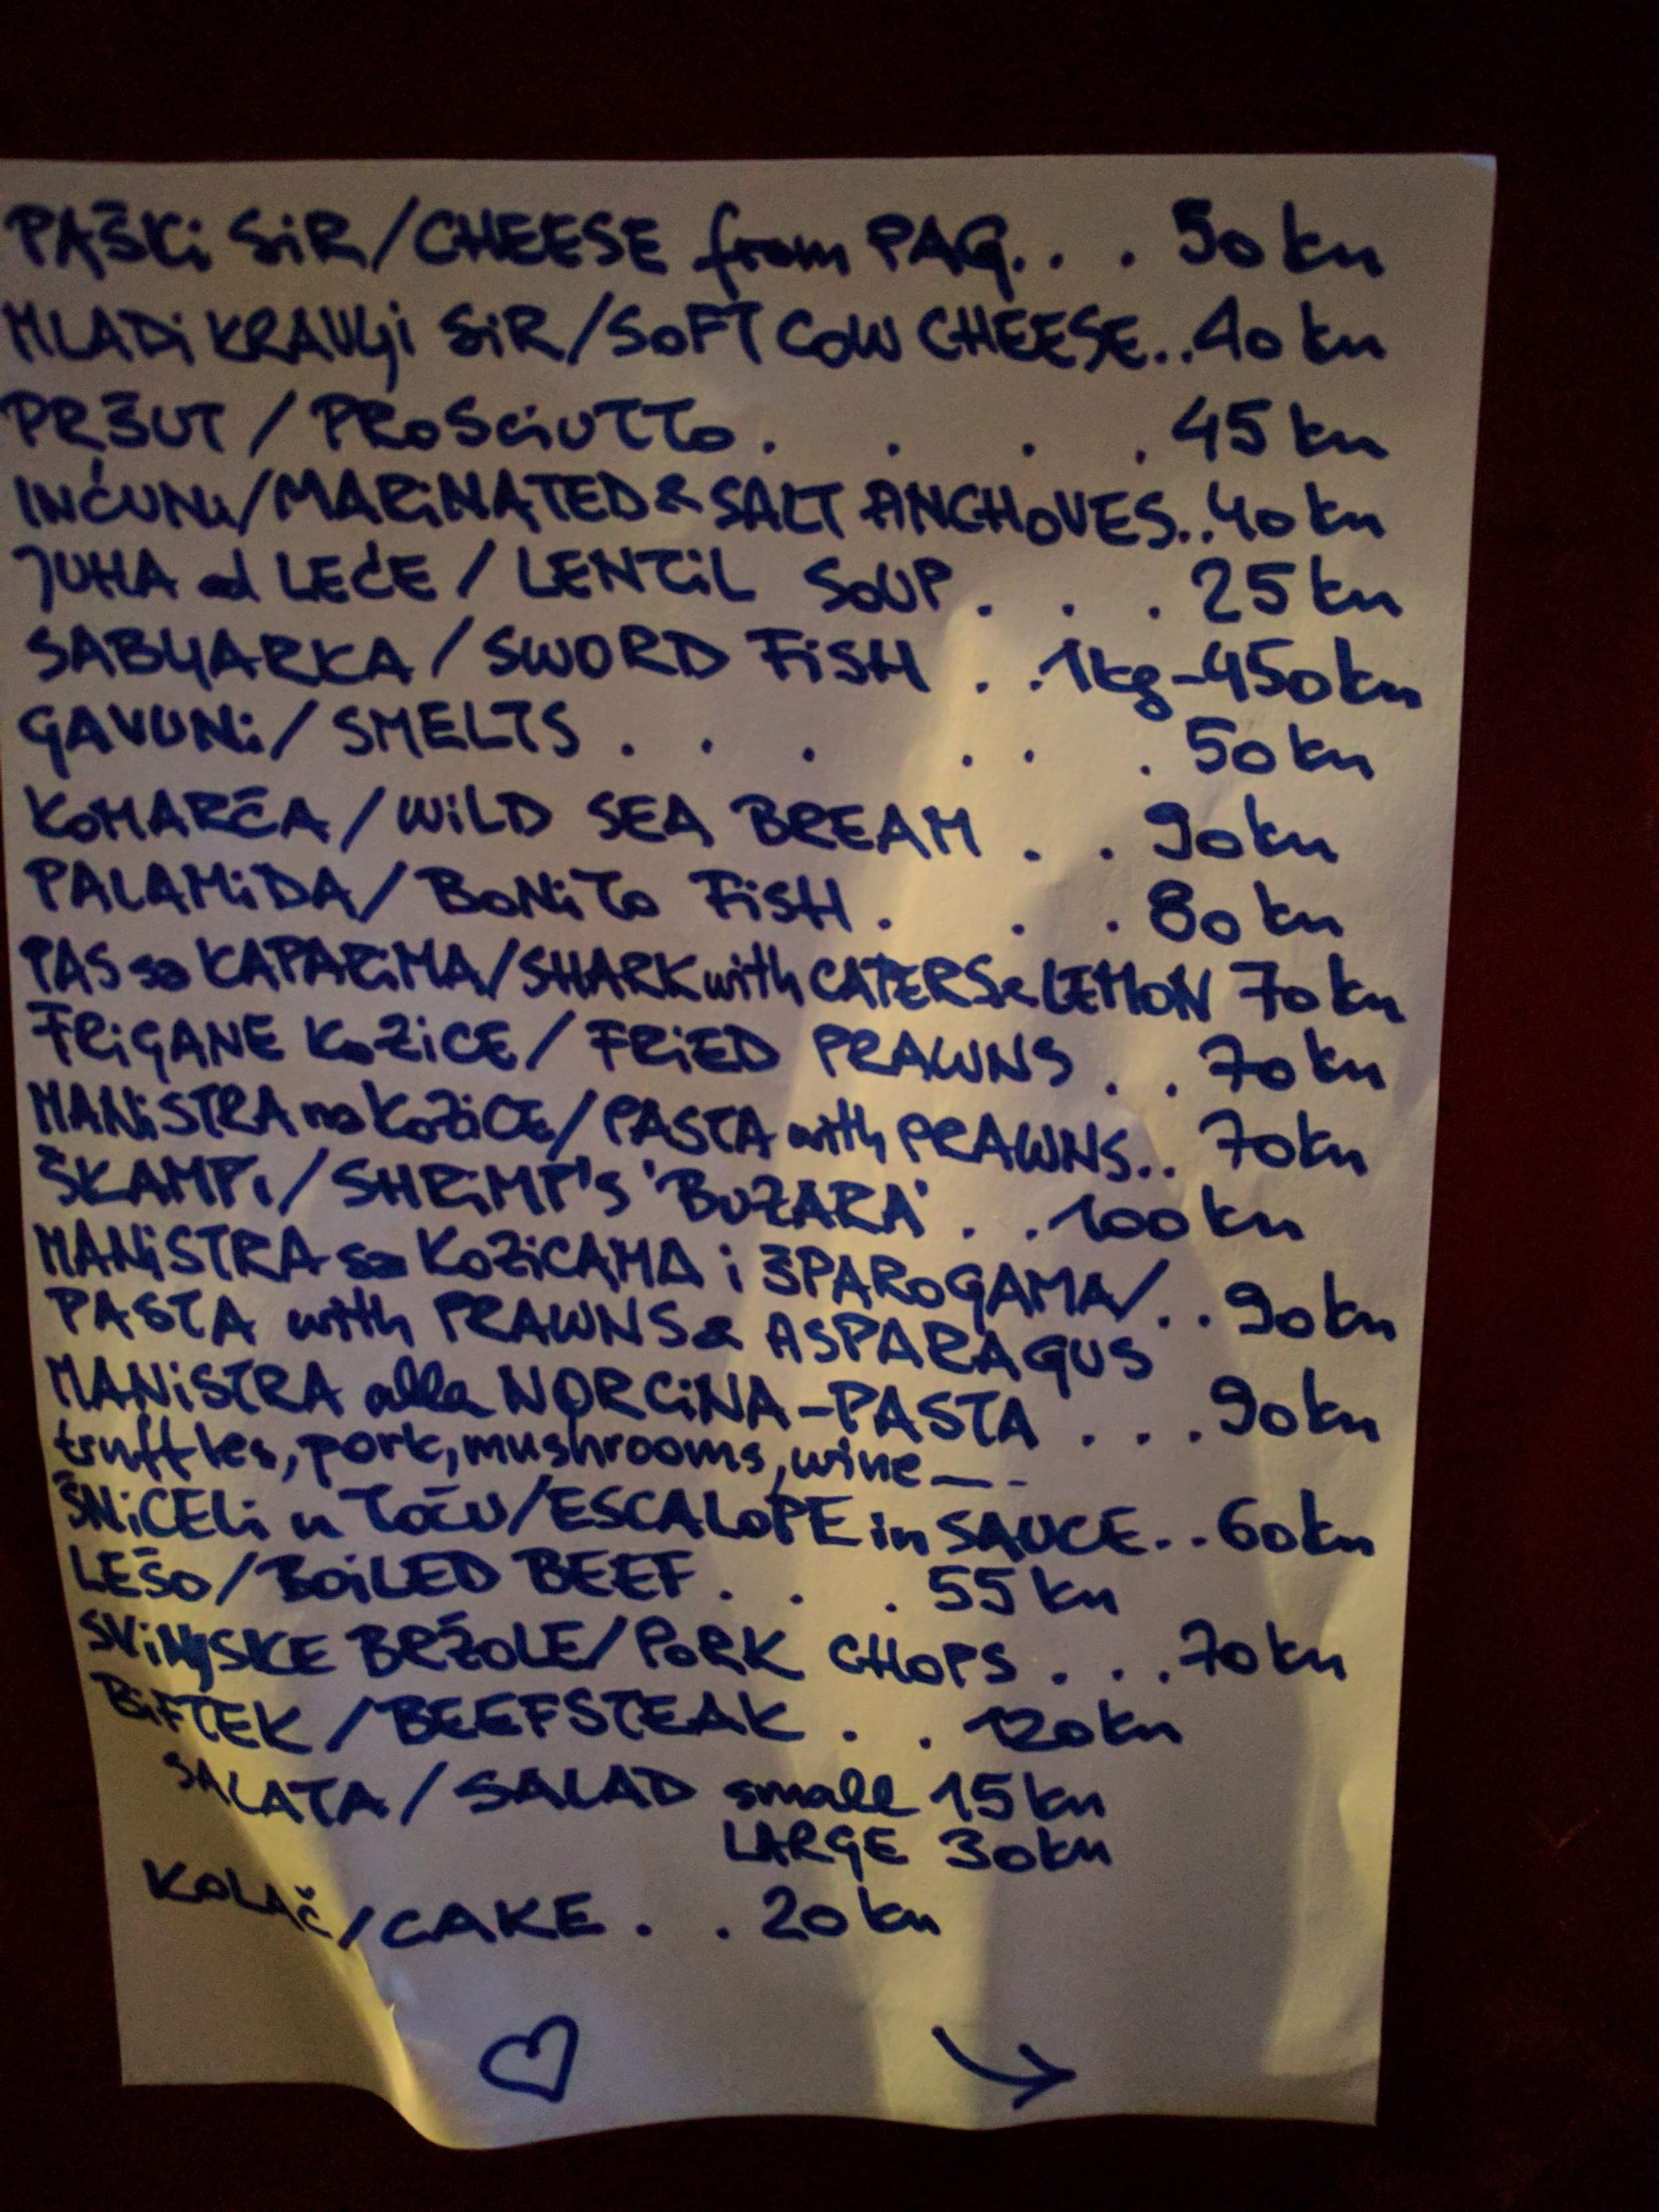 PAŠKi SiR/CHEESE from PAG. . . 50 kn
MLADi KRAVLji SiR/SOFT COW CHEESE..40 kn
PRŠUT / PROSCiUTTO . . . . 45 kn
INĆUNi/MARiNATED & SALT ANCHOVES..40 kn
JUHA od LEĆE / LENTiL SOUP . . . 25 kn
SABLJARKA / SWORD FiSH . . 1kg-450kn
GAVUNi / SMELTS . . . . . . 50 kn
KOMARČA / WiLD SEA BREAM . . 90kn
PALAMiDA / BONiTO FiSH . . . 80 kn
PAS sa KAPARiMA/SHARK with CAPERS & LEMON 70 kn
FRiGANE KOZiCE / FRiED PRAWNS . . 70kn
MANiSTRA na KOZiCE/PASTA with PRAWNS.. 70kn
ŠKAMPi / SHRiMP's 'BUZARA' . . 100 kn
MANiSTRA sa KOZiCAMA i ŠPAROGAMA/ . . 90kn
PASTA with PRAWNS & ASPARAGUS
MANiSTRA alla NORCiNA-PASTA . . . 90kn
truffles, pork, mushrooms, wine _ - -
ŠNiCELi u TOČU/ESCALOPE in SAUCE..60kn
LEŠO/BOiLED BEEF . . . 55 kn
SViNjSKE BRŽOLE/PORK CHOPS . . . 70kn
BiFTEK / BEEFSTEAK . . 120kn
SALATA / SALAD small 15 kn
LARGE 30kn
KOLAČ/CAKE . . 20 kn